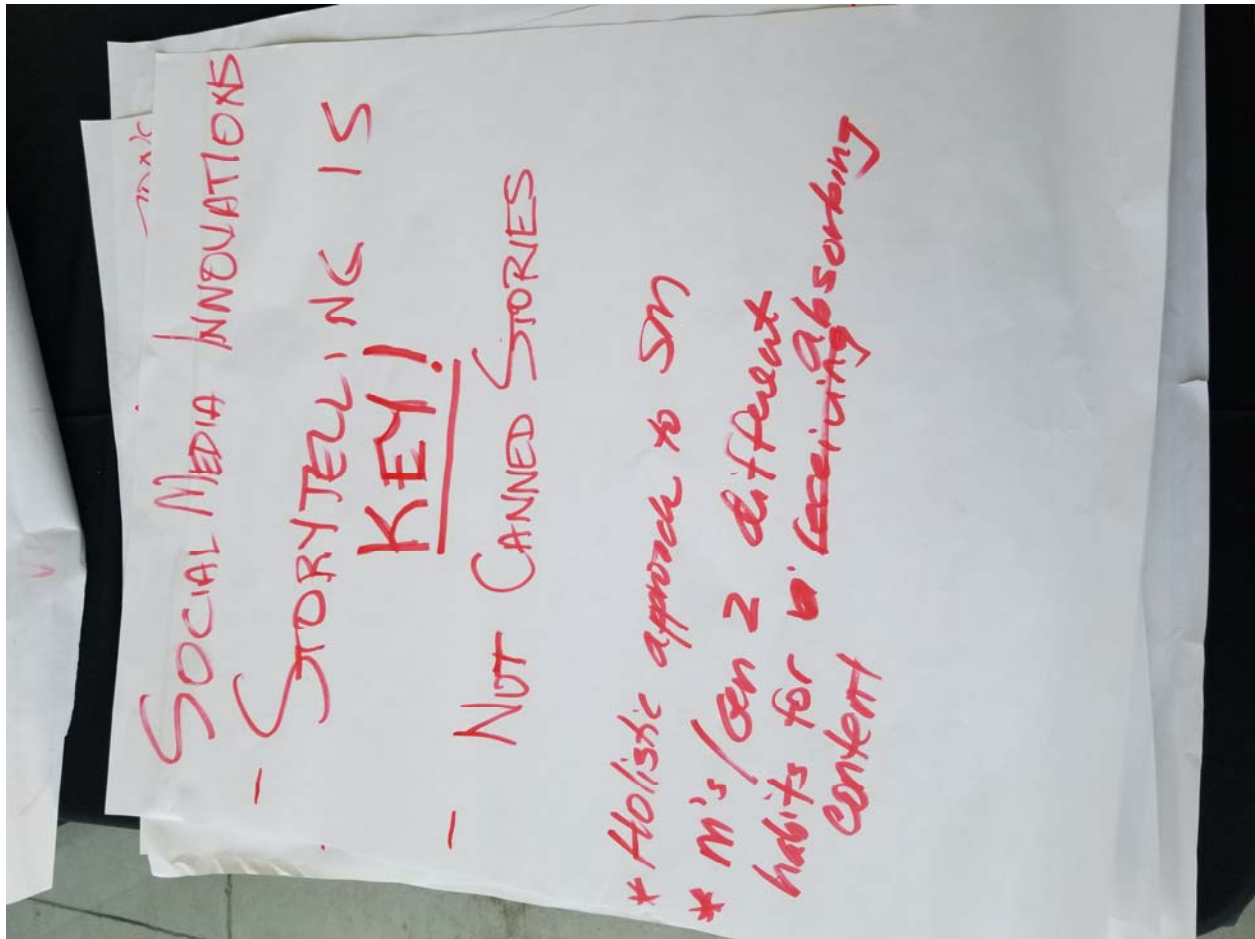 SOCIAL MEDIA INNOVATIONS
- STORYTELLING IS
KEY!
- NOT CANNED STORIES
* Holistic approach to SM
* M's/Gen Z different
habits for absorbing
content